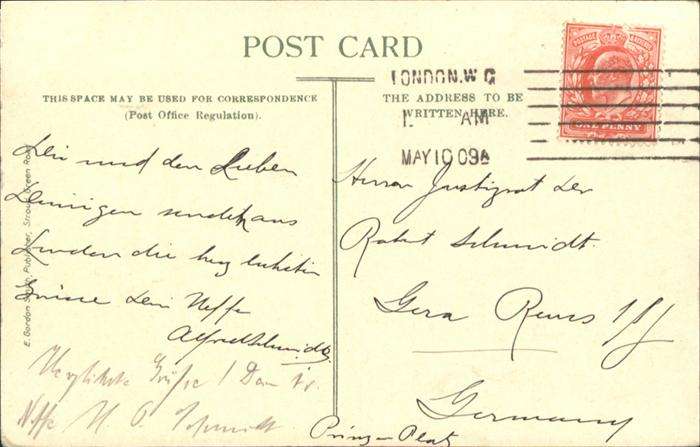 POST CARD
THIS SPACE MAY BE USED FOR CORRESPONDENCE
(Post Office Regulation).
THE ADDRESS TO BE
WRITTEN HERE.
LONDON.W.C
1. AM
MAY 10 09
POSTAGE REVENUE
ONE PENNY
Dir und den Lieben
Deinigen sendet aus
London die herzlichsten
Grüsse Dein Neffe
Alfred Schmidt
Herzlichste Grüße
Neffe Schmidt
Herrn Justizrat
Robert Schmidt.
Gera Reuss
Germany
Platz
E. Gordon Publisher, Stroud Green Road